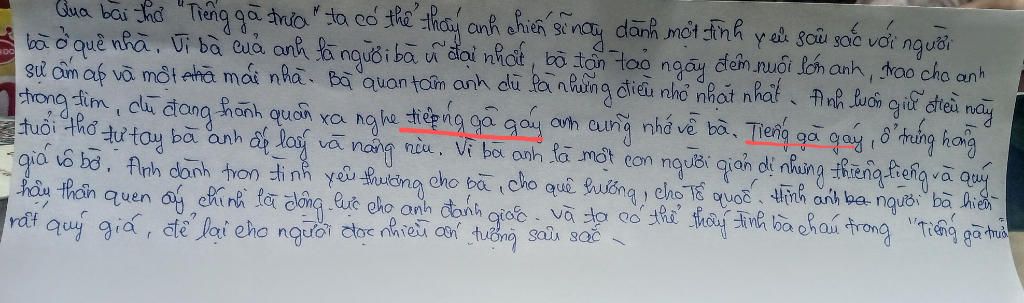 Qua bài thơ "Tiếng gà trưa" ta có thể thấy anh chiến sĩ này dành một tình yêu sâu sắc với người
bà ở quê nhà. Vì bà của anh là người bà vĩ đại nhất, bà tần tảo ngày đêm nuôi lớn anh, trao cho anh
sự ấm áp và một nhà mái nhà. Bà quan tâm anh dù là những điều nhỏ nhặt nhất. Anh luôn giữ điều này
trong tim, dù đang hành quân xa nghe tiếng gà gáy anh cũng nhớ về bà. Tiếng gà gáy, ổ trứng hồng
tuổi thơ tự tay bà anh ấp lấy và nâng niu. Vì bà anh là một con người giản dị nhưng thiêng liêng và quý
giá vô bờ. Anh dành trọn tình yêu thương cho bà, cho quê hương, cho Tổ quốc. Hình ảnh ba người bà hiền
hậu thân quen ấy chính là động lực cho anh đánh giặc. Và ta có thể thấy tình bà cháu trong "Tiếng gà trưa
rất quý giá, để lại cho người đọc nhiều ấn tượng sâu sắc.